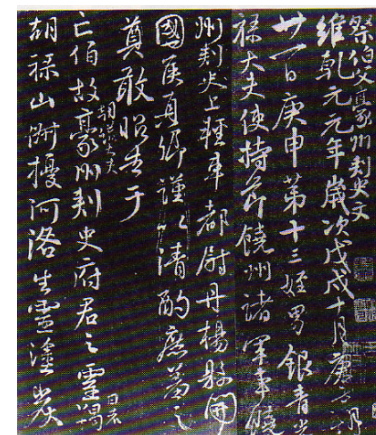 祭伯父豪州刺史文
維乾元元年歲次戊戌十月庚
廿一日庚 第十三姪男銀青光
祿大夫使持節饒州諸軍事饒
州刺史上輕車都尉丹楊縣開
國侯真卿謹以清酌庶羞之
奠敢昭告于
朝議大夫
亡伯故豪州刺史府君之靈羯
胡祿山俶擾河洛生靈塗炭